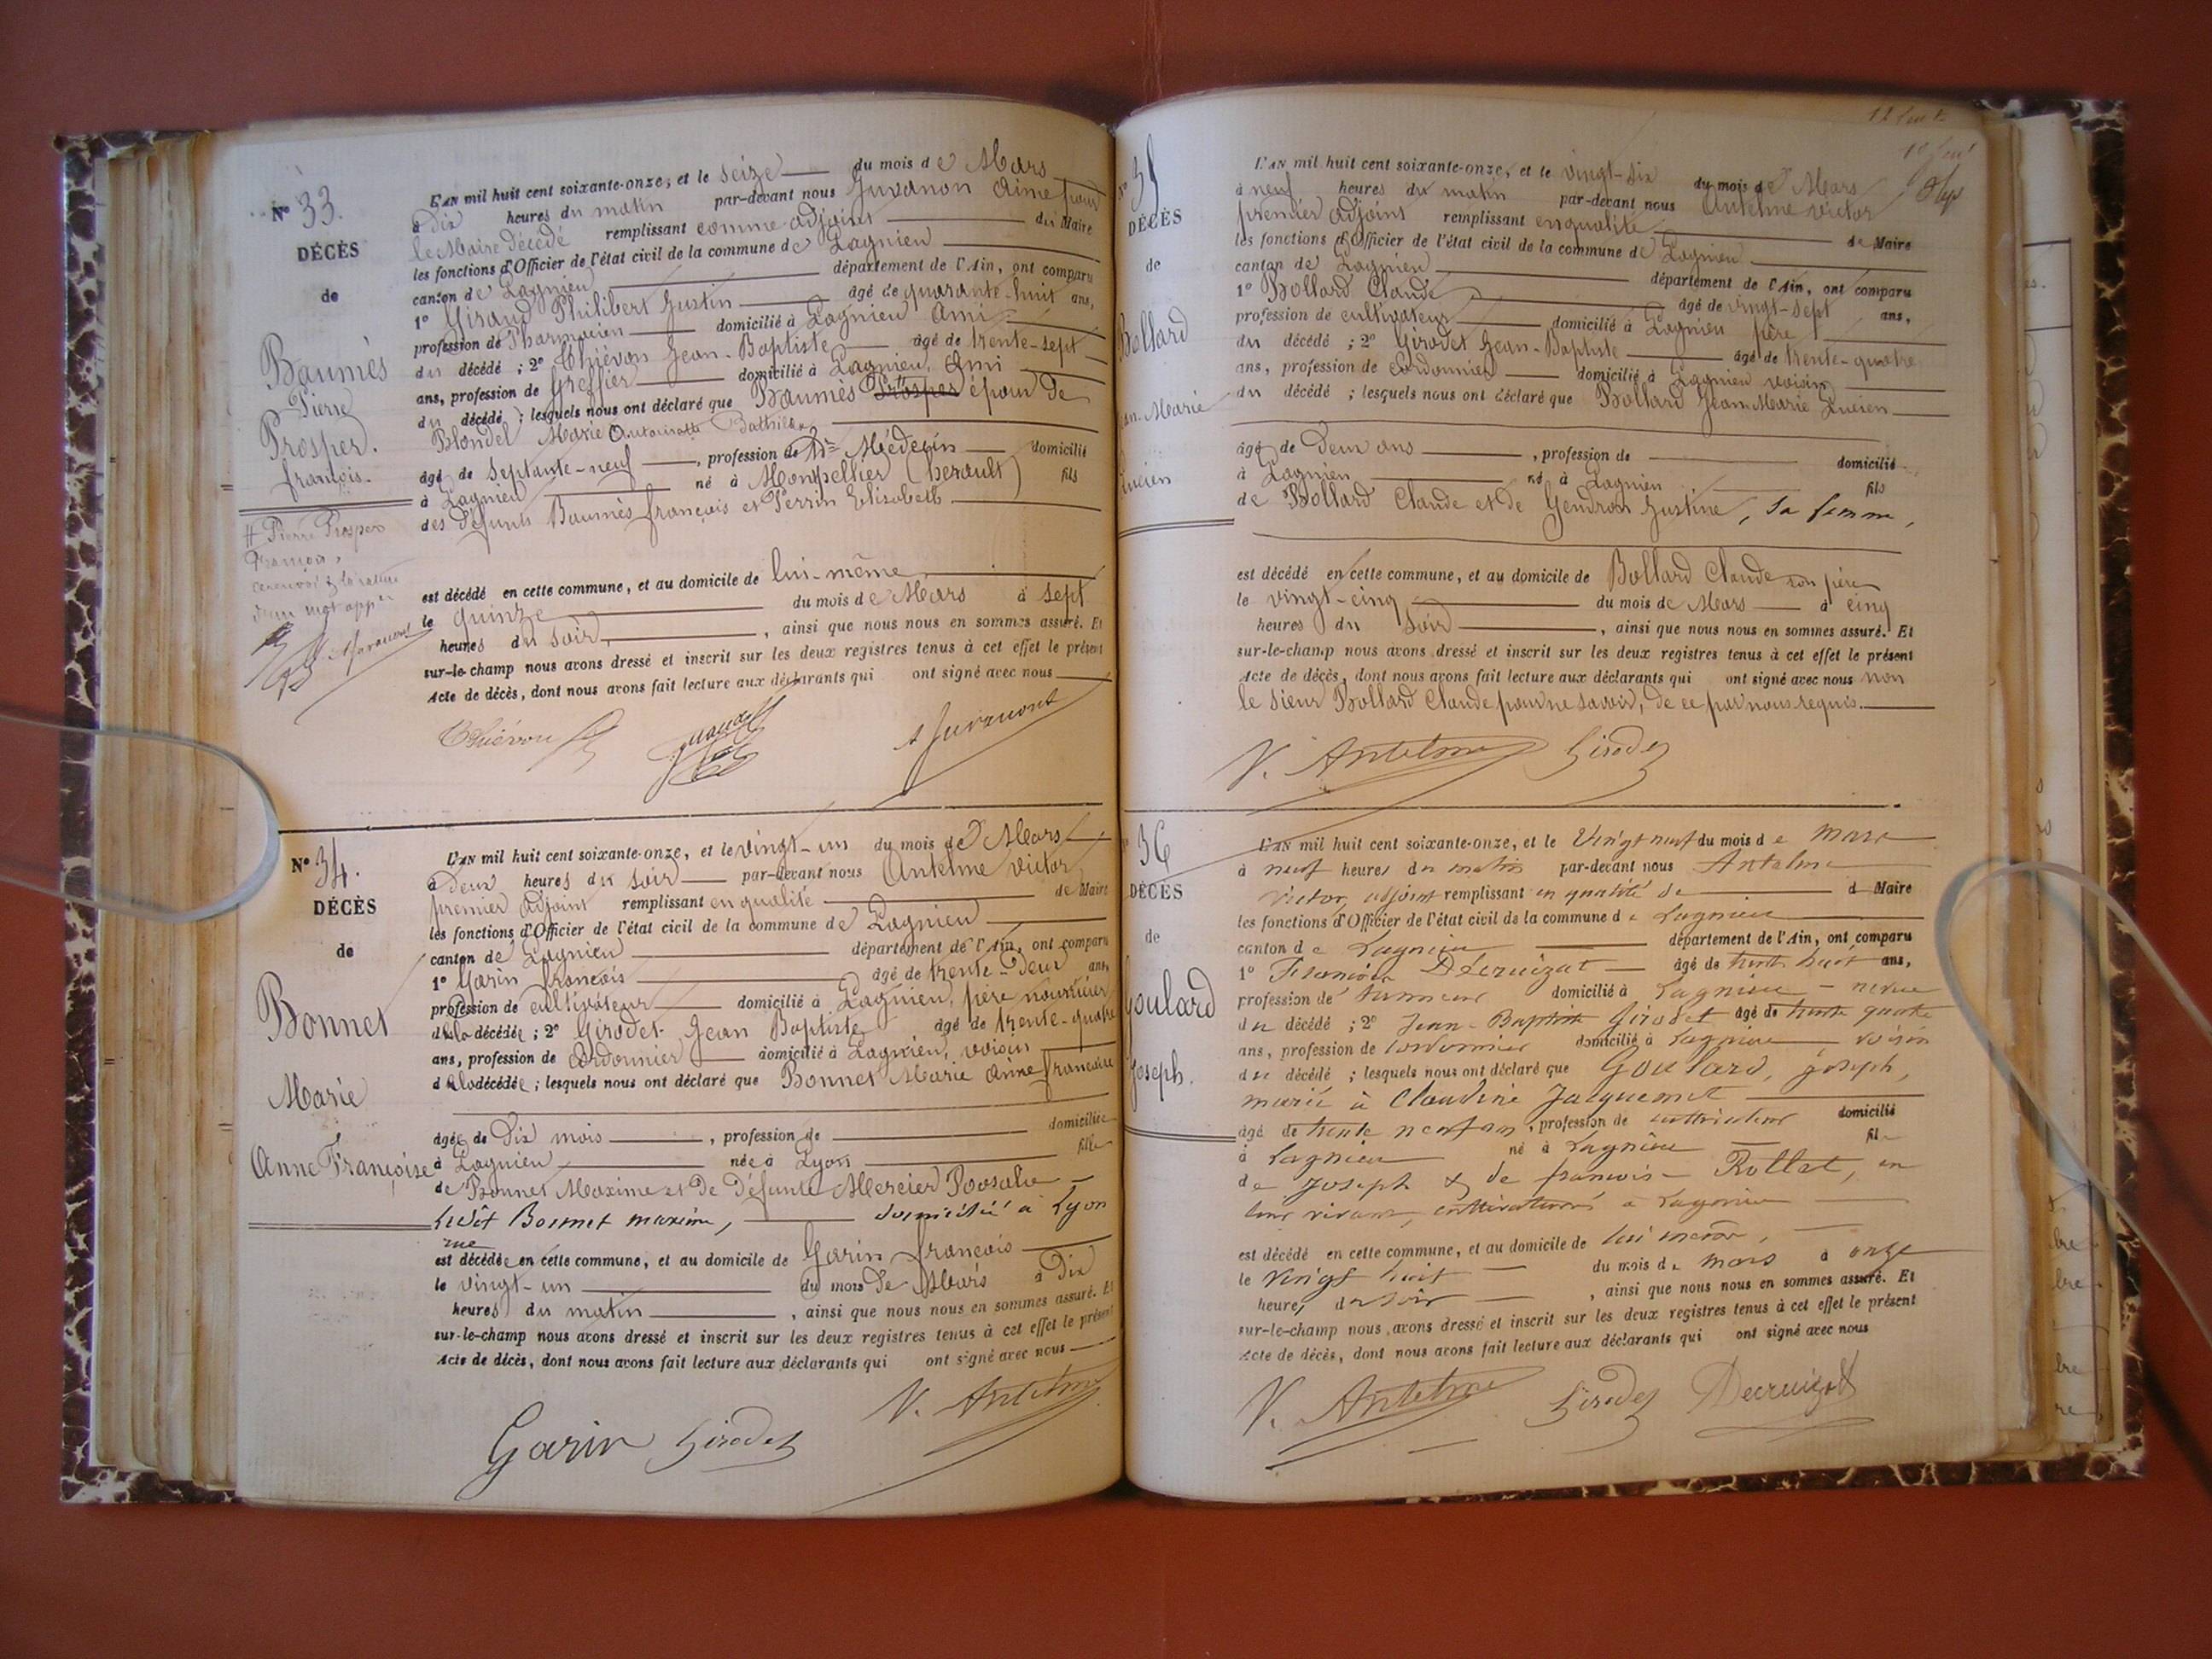 N° 33.
DÉCÈS
de
Baumès
Pierre
Prosper.
françois.
# Pierre Prosper
François,
L'AN mil huit cent soixante-onze, et le seize du mois de Mars
à Dix heures du matin par-devant nous Juvanon Aimé pour
le Maire décédé remplissant comme adjoint du Maire
les fonctions d'Officier de l'état civil de la commune de Lagnieu
canton de Lagnieu département de l'Ain, ont comparu
1° Giraud Philibert Justin âgé de quarante-huit ans,
profession de Pharmacien domicilié à Lagnieu Ami
du décédé ; 2° Thiévon Jean-Baptiste âgé de trente-sept
ans, profession de Greffier domicilié à Lagnieu, Ami
du décédé ; lesquels nous ont déclaré que Baumès Prosper époux de
Blondel Marie Antoinette Bathilde
âgé de septante-neuf, profession de Dr Médecin domicilié
à Lagnieu né à Montpellier (herault) fils
des défunts Baumès françois et Perrin Elisabeth
est décédé en cette commune, et au domicile de lui-même
le quinze du mois de Mars à sept
heures du soir, ainsi que nous nous en sommes assuré. Et
sur-le-champ nous avons dressé et inscrit sur les deux registres tenus à cet effet le présent
Acte de décès, dont nous avons fait lecture aux déclarants qui ont signé avec nous
Thiévon A Juvanon
N° 34.
DÉCÈS
de
Bonnet
Marie
Anne Françoise
L'AN mil huit cent soixante-onze, et le vingt-un du mois de Mars
à Deux heures du soir par-devant nous Antelme Victor
premier Adjoint remplissant en qualité de Maire
les fonctions d'Officier de l'état civil de la commune de Lagnieu
canton de Lagnieu département de l'Ain, ont comparu
1° Garin françois âgé de trente-deux ans,
profession de cultivateur domicilié à Lagnieu, père nourricier
de la décédée ; 2° Girodet Jean Baptiste âgé de trente-quatre
ans, profession de Cordonnier domicilié à Lagnieu, voisin
de la décédée ; lesquels nous ont déclaré que Bonnet Marie Anne françoise
âgée de Dix mois, profession de domiciliée
à Lagnieu née à Lyon fille
de Bonnet Maxime et de défunte Mercier Roosalie
ledit Bonnet maxime, domicilié à Lyon
est décédée en cette commune, et au domicile de Garin françois
le vingt-un du mois de Mars à Dix
heures du matin, ainsi que nous nous en sommes assuré. Et
sur-le-champ nous avons dressé et inscrit sur les deux registres tenus à cet effet le présent
Acte de décès, dont nous avons fait lecture aux déclarants qui ont signé avec nous
Garin Girodet V. Antelme
35
DÉCÈS
de
Bollard
Jean-Marie
Lucien
L'AN mil huit cent soixante-onze, et le vingt-six du mois de Mars
à neuf heures du matin par-devant nous Antelme Victor
premier adjoint remplissant en qualité de Maire
les fonctions d'Officier de l'état civil de la commune de Lagnieu
canton de Lagnieu département de l'Ain, ont comparu
1° Bollard Claude âgé de vingt-sept ans,
profession de cultivateur domicilié à Lagnieu père
du décédé ; 2° Girodet Jean-Baptiste âgé de trente-quatre
ans, profession de Cordonnier domicilié à Lagnieu voisin
du décédé ; lesquels nous ont déclaré que Bollard Jean-Marie Lucien
âgé de Deux ans, profession de domicilié
à Lagnieu né à Lagnieu fils
de Bollard Claude et de Gendron Justine, sa femme,
est décédé en cette commune, et au domicile de Bollard Claude son père
le vingt-cinq du mois de Mars à cinq
heures du Soir, ainsi que nous nous en sommes assuré. Et
sur-le-champ nous avons dressé et inscrit sur les deux registres tenus à cet effet le présent
Acte de décès, dont nous avons fait lecture aux déclarants qui ont signé avec nous non
le sieur Bollard Claude pour ne savoir, de ce par nous requis.
V. Antelme Girodet
36
DÉCÈS
de
Goulard
Joseph.
L'AN mil huit cent soixante-onze, et le Vingt neuf du mois de mars
à neuf heures du matin par-devant nous Antelme
Victor, adjoint remplissant en qualité de d Maire
les fonctions d'Officier de l'état civil de la commune de Lagnieu
canton de Lagnieu département de l'Ain, ont comparu
1° François Décruizat âgé de trente huit ans,
profession de domicilié à Lagnieu - neveu
du décédé ; 2° Jean-Baptiste Girodet âgé de trente quatre
ans, profession de cordonnier domicilié à Lagnieu, voisin
du décédé ; lesquels nous ont déclaré que Goulard, Joseph,
marié à Claudine Jacquemet
âgé de trente neuf ans, profession de cultivateur domicilié
à Lagnieu né à Lagnieu fil
de Joseph & de françoise Rollet, en
leur vivant, cultivateurs à Lagnieu
est décédé en cette commune, et au domicile de lui même,
le vingt huit du mois de mars à onze
heures du soir, ainsi que nous nous en sommes assuré. Et
sur-le-champ nous avons dressé et inscrit sur les deux registres tenus à cet effet le présent
Acte de décès, dont nous avons fait lecture aux déclarants qui ont signé avec nous
V. Antelme Girodet Decruizat